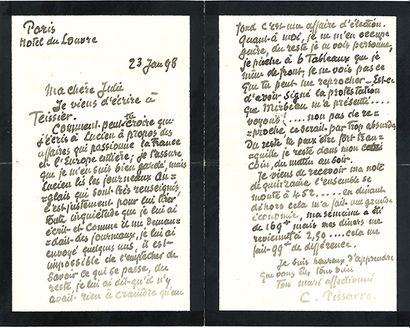 Paris
Hotel du Louvre
23 Jan 98
Ma chère Julie
Je viens d'écrire à
Teissier.
Comment peut-tu croire que
j'écris à Lucien à propos des
affaires qui passionne la France
et l'Europe entière; je t'assure
que je m'en suis bien gardé, mais
Lucien lit les journeaux An-
glais qui sont très renseignés,
c'est justement pour lui tirer
toute inquiétude que je lui ai
écrit et comme il me deman-
dait des journaux, je lui ai
envoyé quelques uns, il est
impossible de l'empêcher de
savoir ce qui se passe, du
reste, je lui ai dit qu'il n'y
avait rien à craindre qu'au
fond c'est une affaire d'élection.
Quant à moi, je ne m'en occupe
guère, du reste je ne vois personne,
je pioche à 6 Tableaux que je
mène de front, je ne vois pas ce
que tu peut me reprocher. Est-ce
d'avoir signé la protestation
que Mirbeau m'a présenté....
voyons!.... non pas de re-
proche, ce serait par trop absurde.
Du reste tu peux être fort tran-
quille je reste dans mon
coin, du matin au soir.
Je viens de recevoir ma note
de quinzaine l'ensemble se
monte à 452.... en dinant
dehors cela me fait une grande
économie, ma semaine a été
de 169 mais mes diners me
reviennent à 2,50.... cela me
fait 99 de différence.
Je suis heureux d'apprendre
que vous
Ton mari affectionné
C. Pissarro